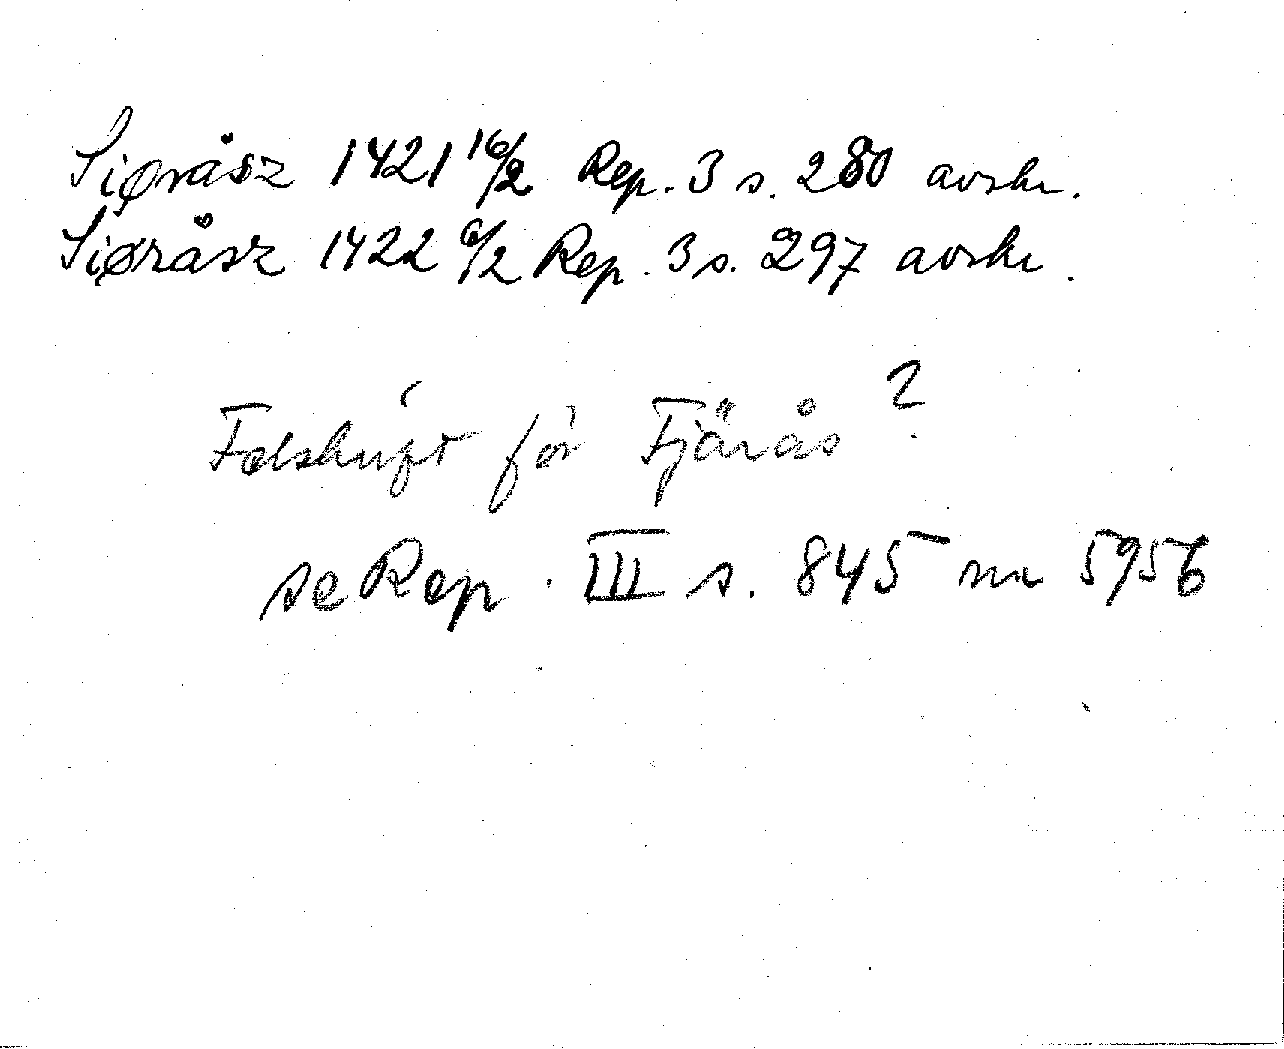 Siøråsz 1421 16/2 Rep. 3 s. 280 avskr.
Siøråsz 1422 6/2 Rep. 3 s. 297 avskr.
Felskrift för Fjärås?
se Rep. III s. 845 nr 5956